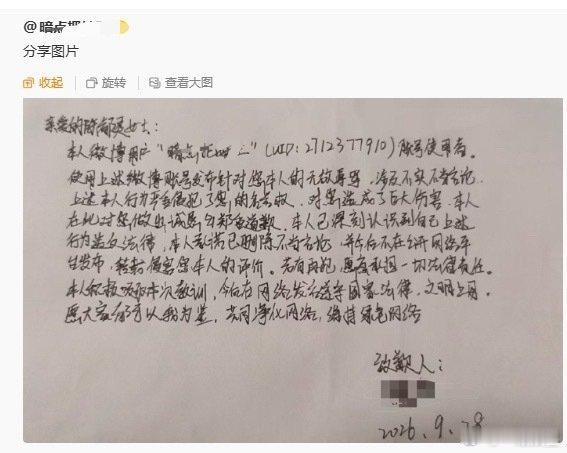 @暗点
分享图片
收起 旋转 查看大图
亲爱的陈 女士：
本人微博用户"暗点 "(UID：2712377910)账号使用者。
使用上述微博账号发布针对您本人的 涉及不实不当言论
上述本人行为严重侵犯了您的名誉权，对您造成了巨大伤害，本人
在此对您做出诚恳 郑重道歉。本人已深刻认识到自己上述
行为 法律，本人承诺已删除不当言论，并今后不在公开网络平
台发布，转载侵害您本人的评价。若有再犯，愿意承担一切法律责任。
本人积极吸取本次教训，今后在网络发言遵守国家法律，文明上网。
愿大家 可以我为鉴，共同净化网络，维持绿色网络
致歉人：
2026.9.28